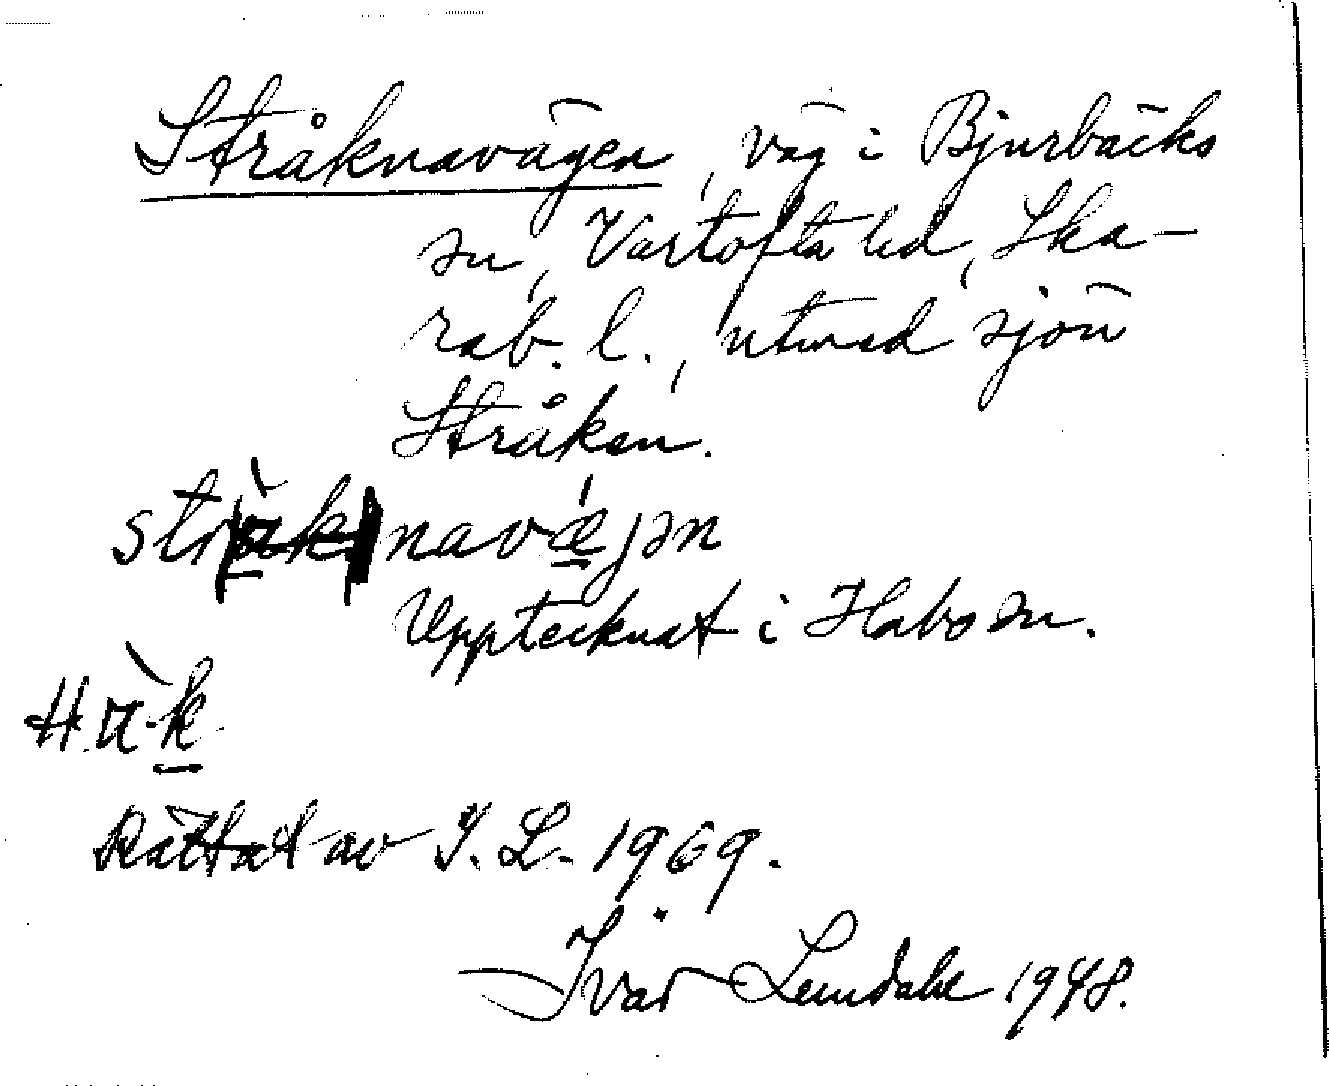 Stråknavägen, väg i Bjurbäcks
sn, Vartofta hd, Ska-
rab. l., utmed sjön
Stråken.
navæjən
Upptecknat i Habo sn.
Rättat av I. L. 1969.
Ivar Lundahl 1948.